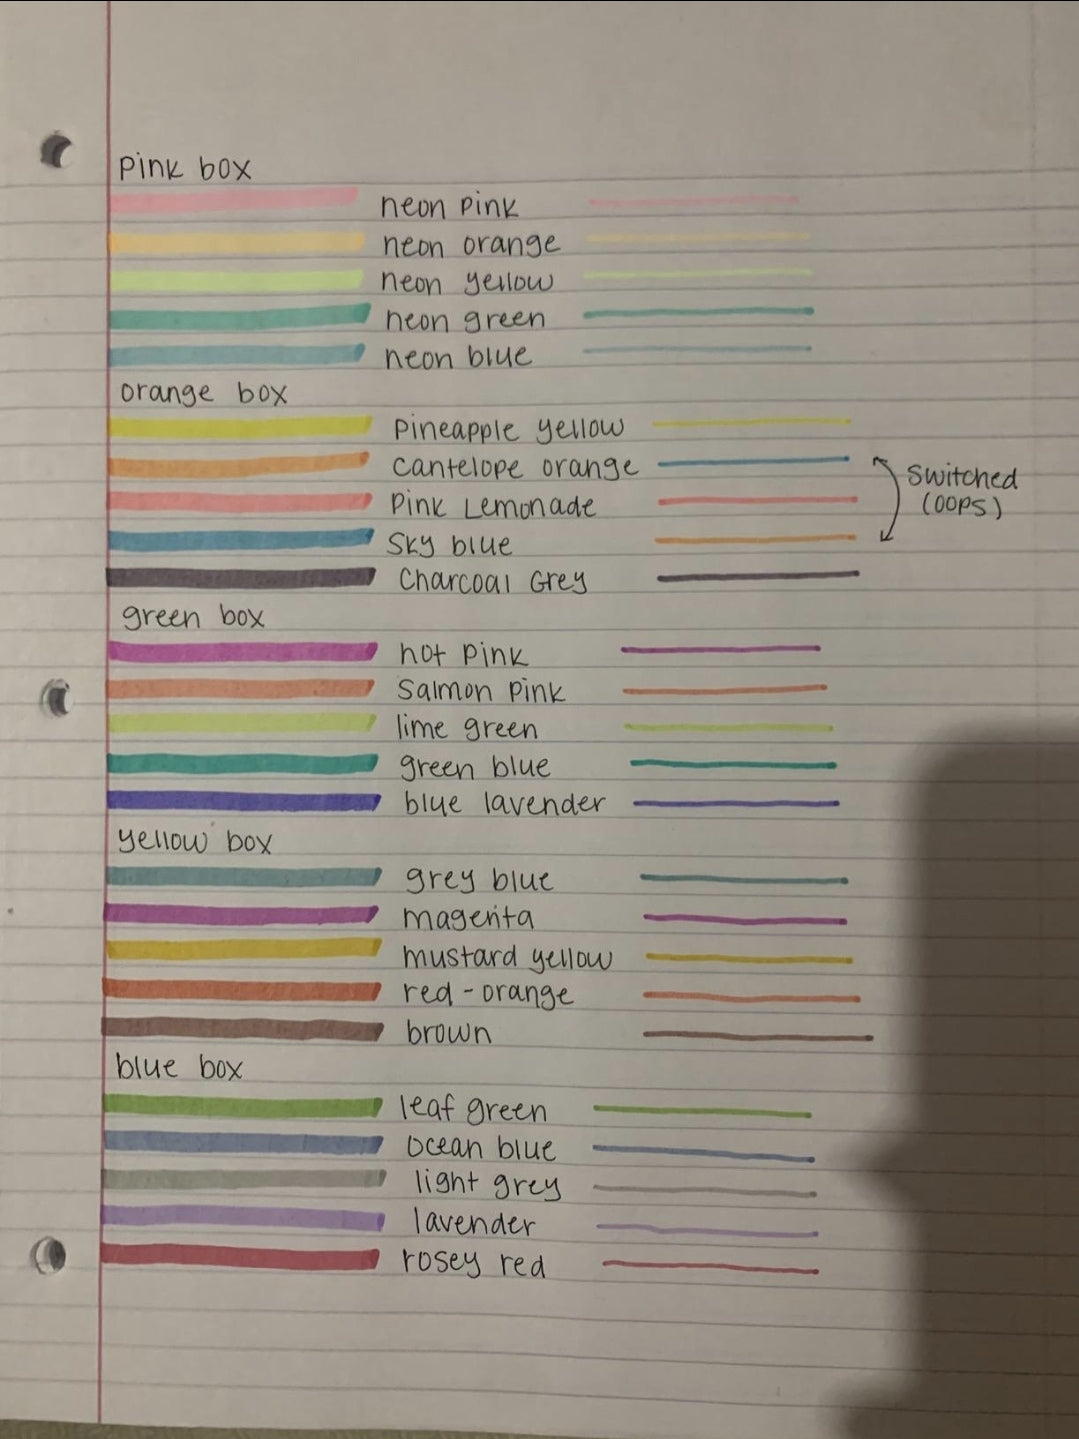 pink box
neon pink
neon orange
neon yellow
neon green
neon blue
orange box
Pineapple yellow
Cantelope orange
Switched
Pink Lemonade
(oops)
Sky blue
Charcoal Grey
green box
hot pink
Salmon pink
lime green
green blue
blue lavender
yellow box
grey blue
magenta
mustard yellow
red-orange
brown
blue box
leaf green
ocean blue
light grey
lavender
rosey red